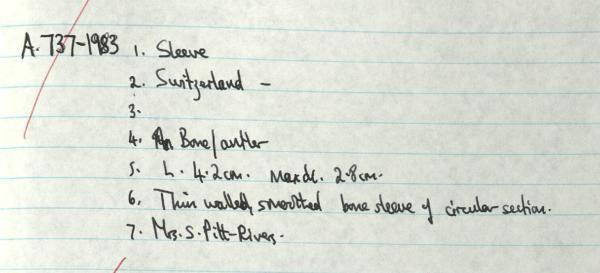 A.737-1983 1. Sleeve
2. Switzerland -
3.
4. Bone/antler
5. L. 4.2cm. Max di. 2.8cm.
6. Thin walled, smoothed bone sleeve of circular section.
7. Mrs. S. Pitt-Rivers.